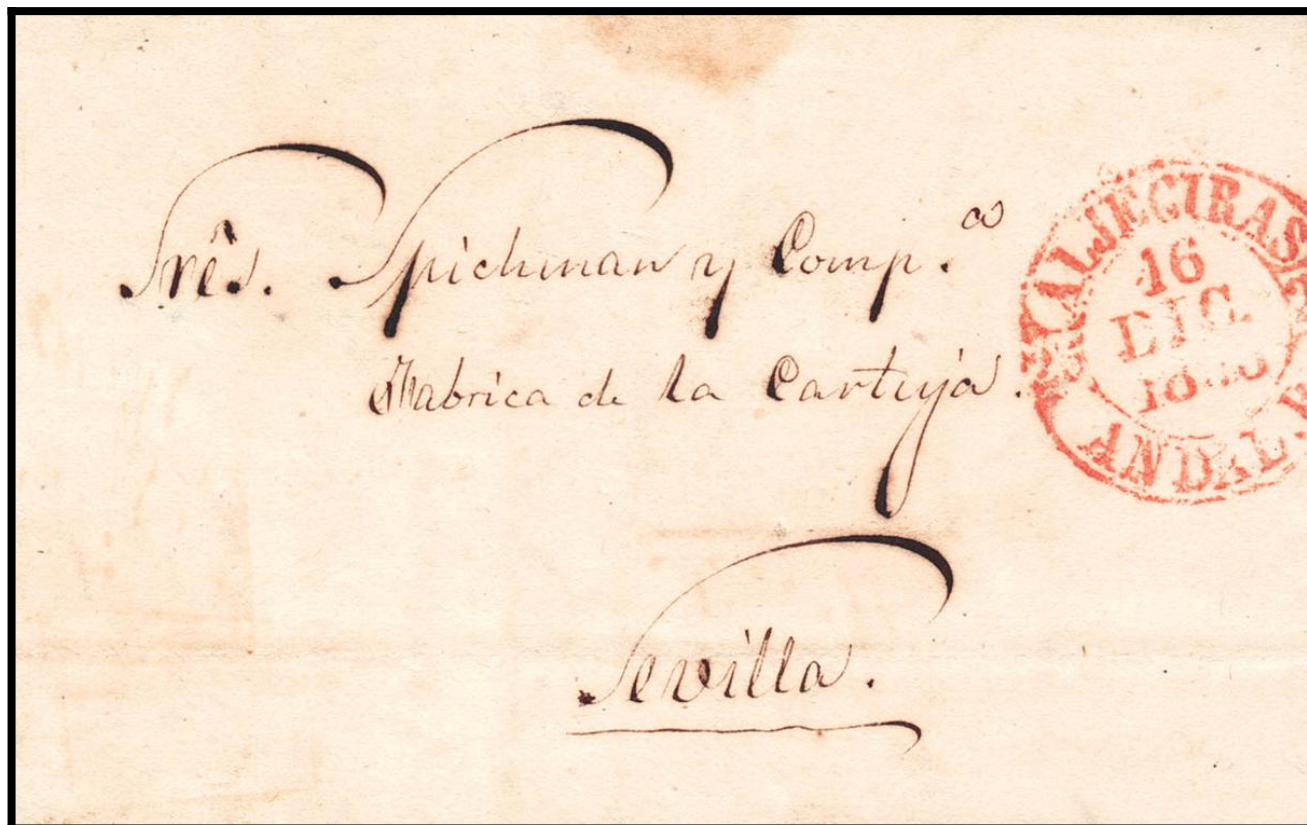 Sres. Spichman y Comp.a
Fabrica de la Cartuja.
Sevilla.
ALJECIRAS
16
DIC.
ANDAL. B